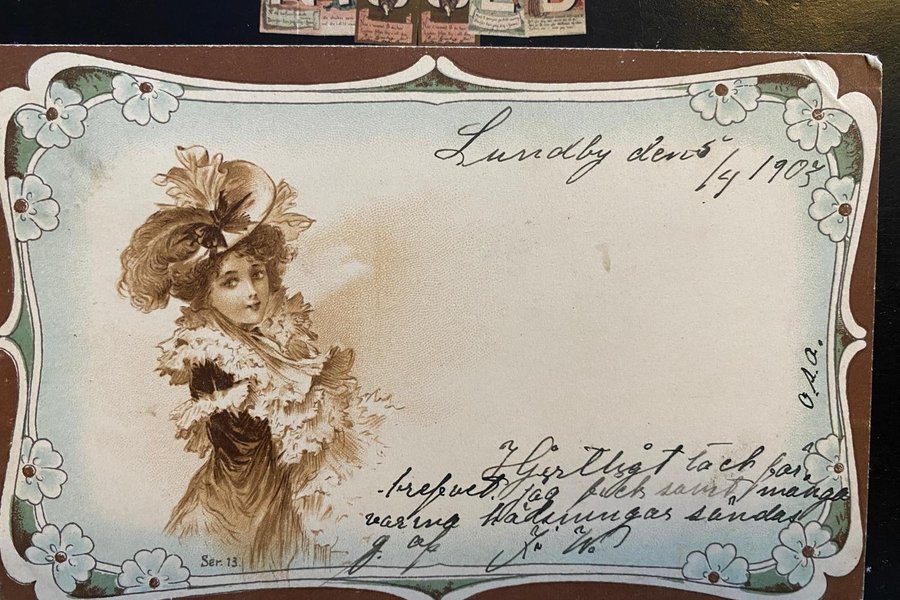 Lundby den 5/4 1903
o.s.a.
Hjertligt tack för
brefvet jag fick samt många
varma hälsningar sändas
g. af K. W.
Ser. 13.